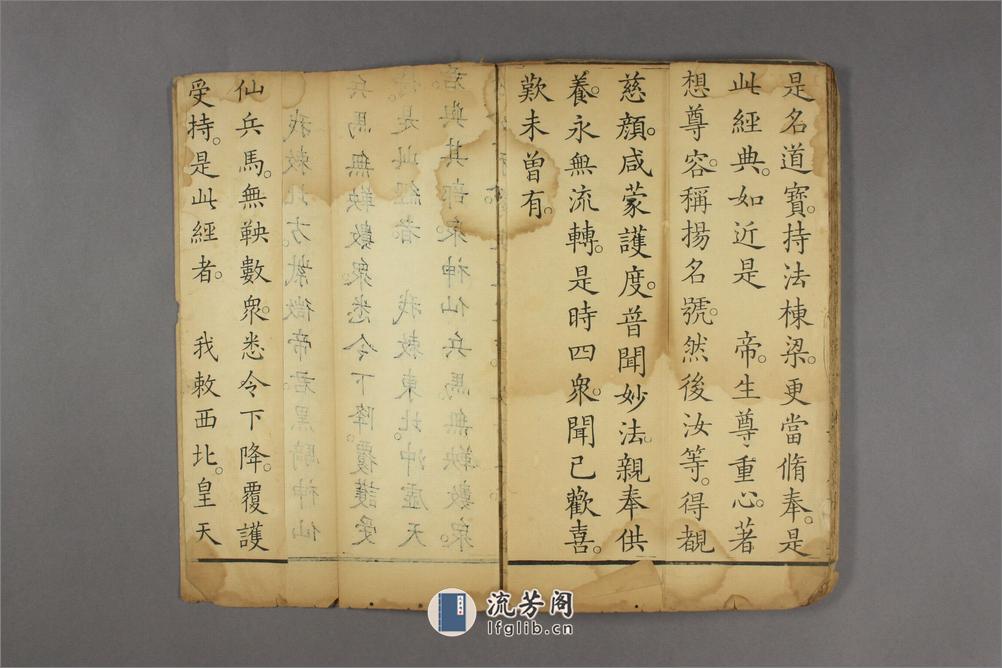 是名道寶。持法棟梁。更當脩奉。是
此經典。如近是　帝。生尊、重心。著
想尊容。稱揚名號。然後汝等。得覩
慈顔。咸蒙護度。普聞妙法。親奉供
養。永無流轉。是時四衆。聞已歡喜。
歎未曾有。
君與其部衆。神仙兵馬。無鞅數衆。
是此經者　我敕東北。沖虛天
兵馬無鞅數衆。悉令下降。覆護受
我敕北方。紫微帝君。黑騎神仙
仙兵馬。無鞅數衆。悉令下降。覆護
受持。是此經者。　我敕西北。皇天
流芳阁
lfglib.cn